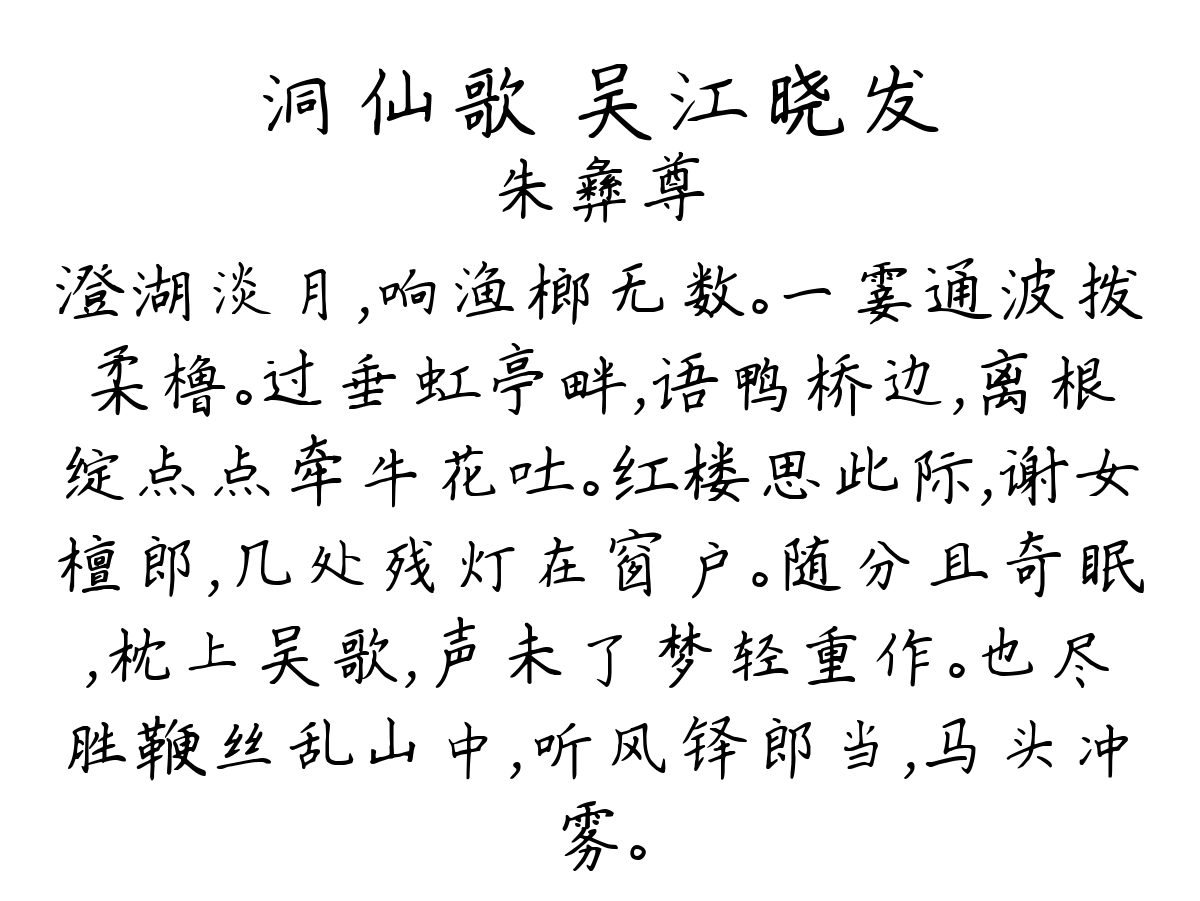 洞仙歌 吴江晓发
朱彝尊
澄湖淡月,响渔榔无数。一霎通波拨
柔橹。过垂虹亭畔,语鸭桥边,离根
绽点点牵牛花吐。红楼思此际,谢女
檀郎,几处残灯在窗户。随分且奇眠
,枕上吴歌,声未了梦轻重作。也尽
胜鞭丝乱山中,听风铎郎当,马头冲
雾。